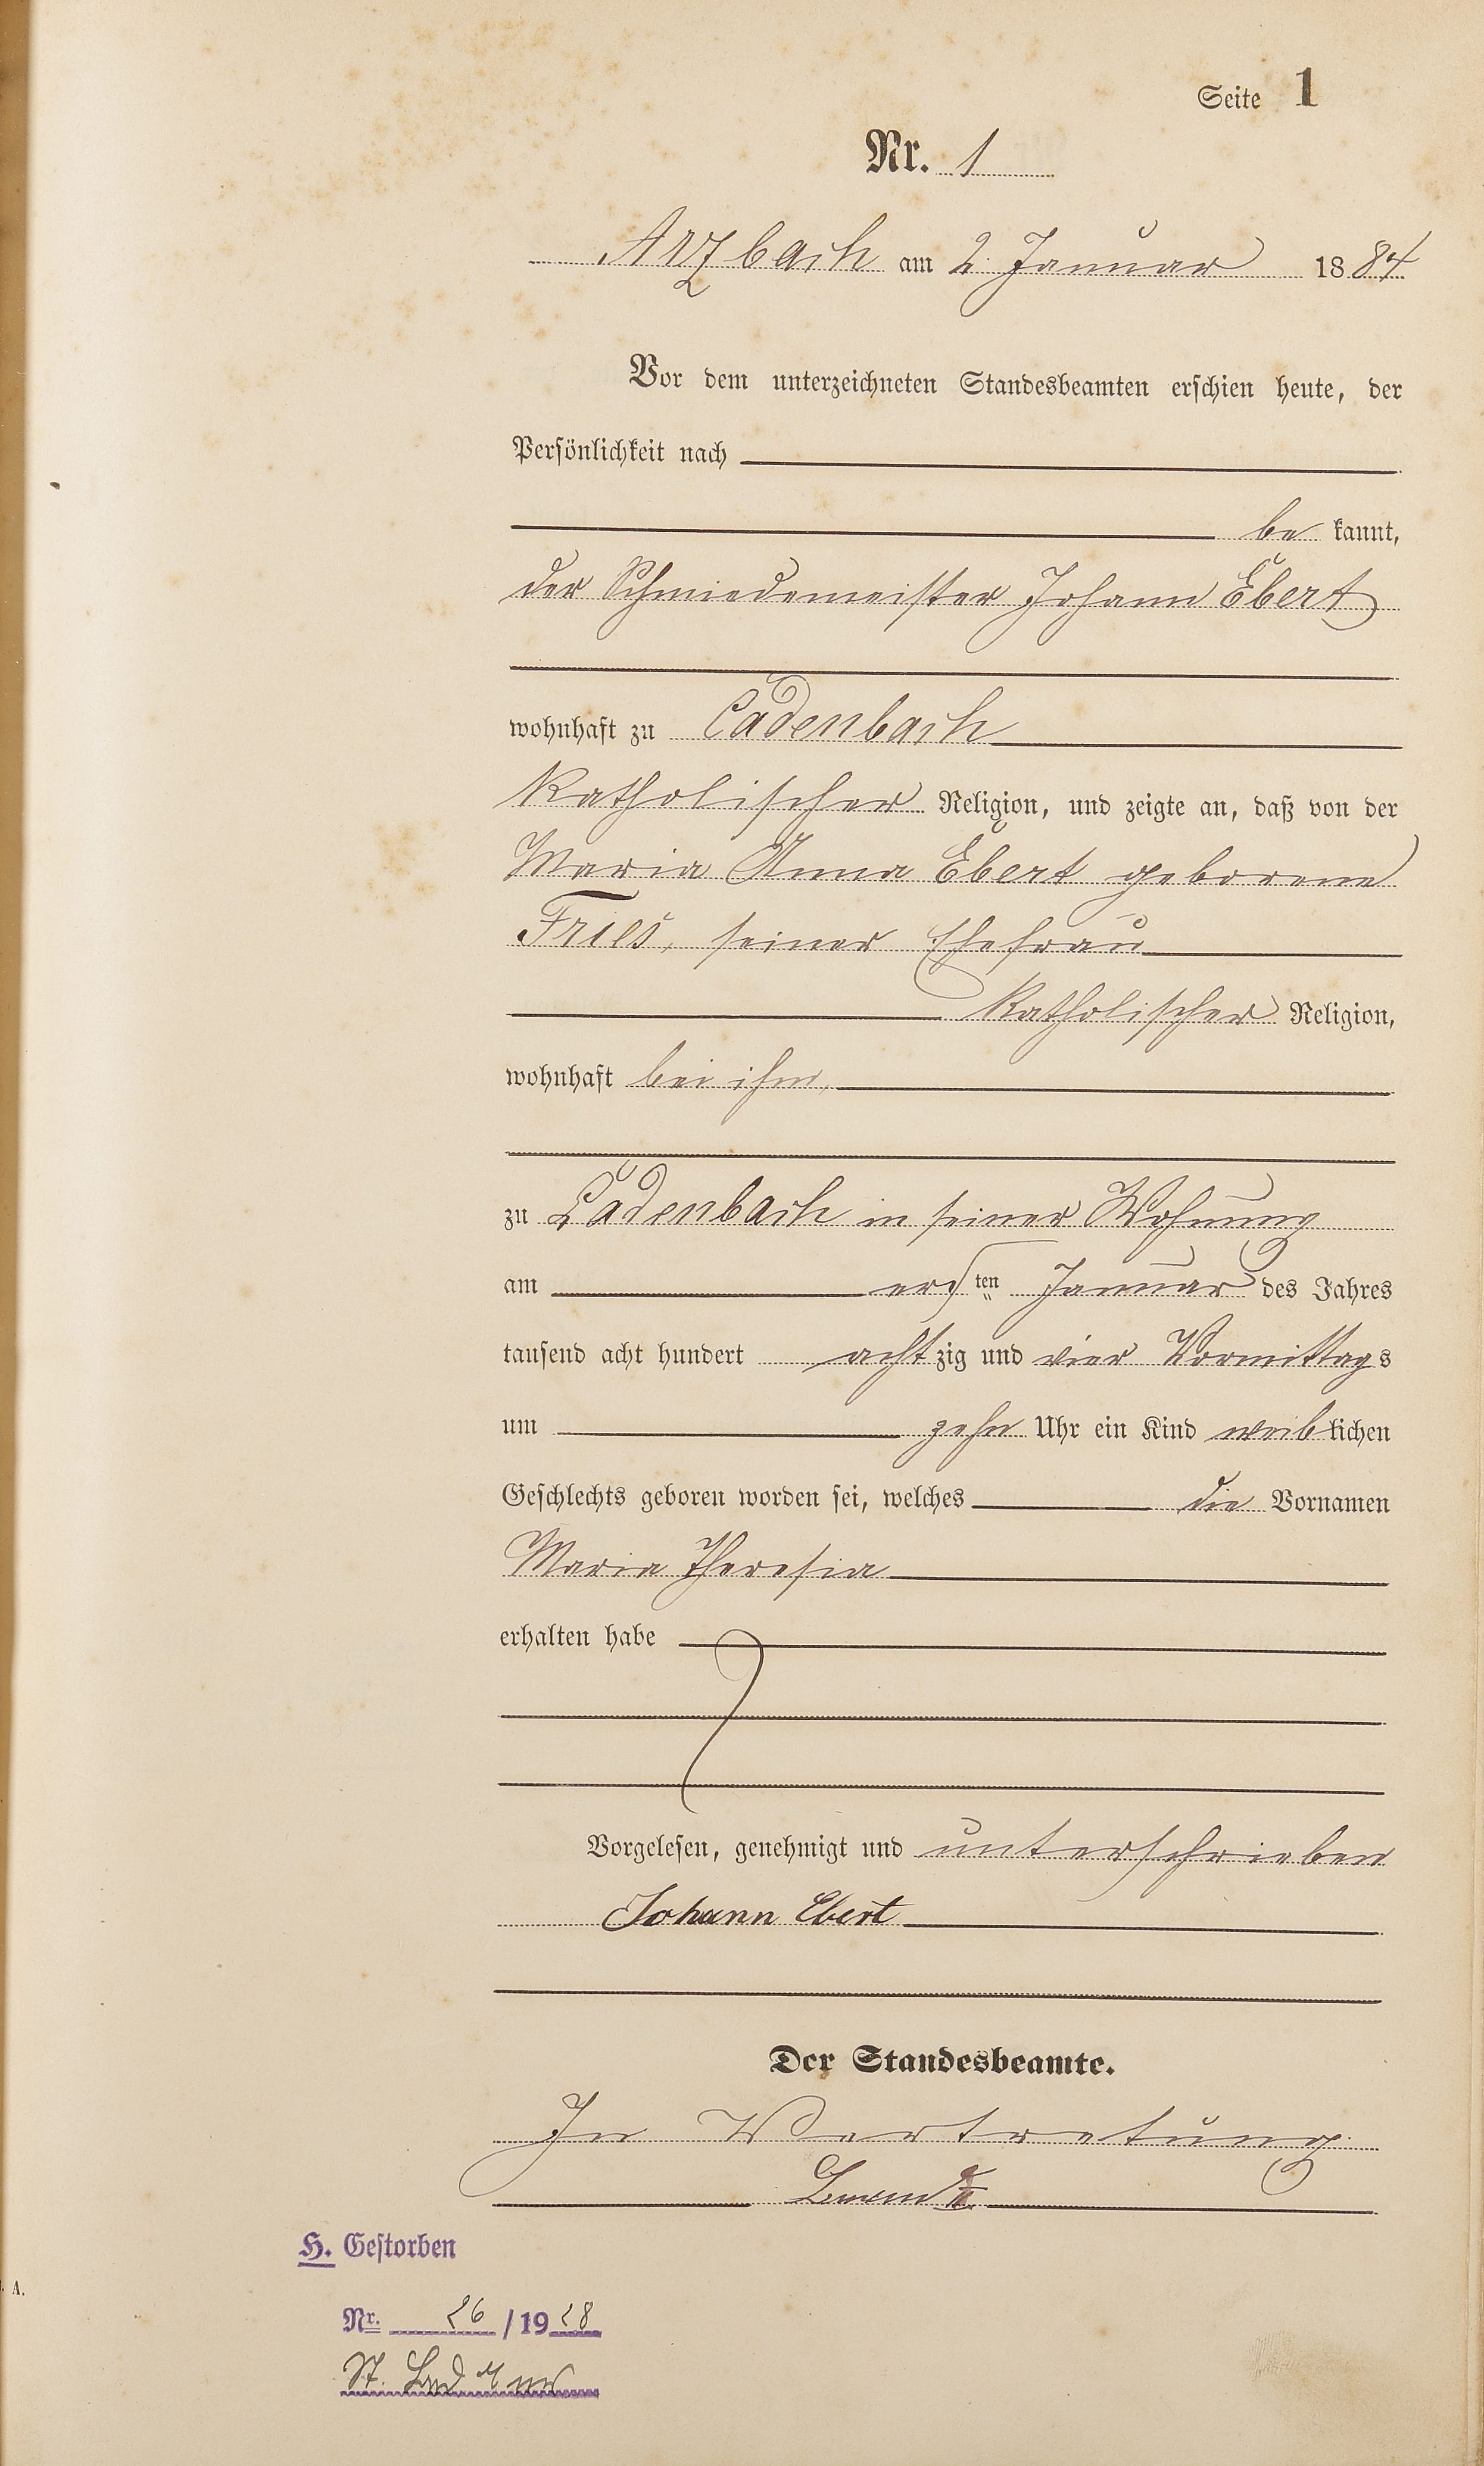 Seite 1
Nr. 1
Arzbach am 2. Januar 1884
Vor dem unterzeichneten Standesbeamten erschien heute, der
Persönlichkeit nach
be kannt,
der Schmiedemeister Johann Ebert
wohnhaft zu Cadenbach
katholischer Religion, und zeigte an, daß von der
Maria Anna Ebert geborene
Fries, seiner Ehefrau
katholischer Religion,
wohnhaft bei ihm,
zu Cadenbach in seiner Wohnung
am ersten Januar des Jahres
tausend acht hundert achtzig und vier Vormittags
um zehn Uhr ein Kind weiblichen
Geschlechts geboren worden sei, welches die Vornamen
Maria Theresia
erhalten habe
Vorgelesen, genehmigt und unterschrieben
Johann Ebert
Der Standesbeamte.
In Vertretung
H. Gestorben
Nr. 26 / 1928
St.
A.